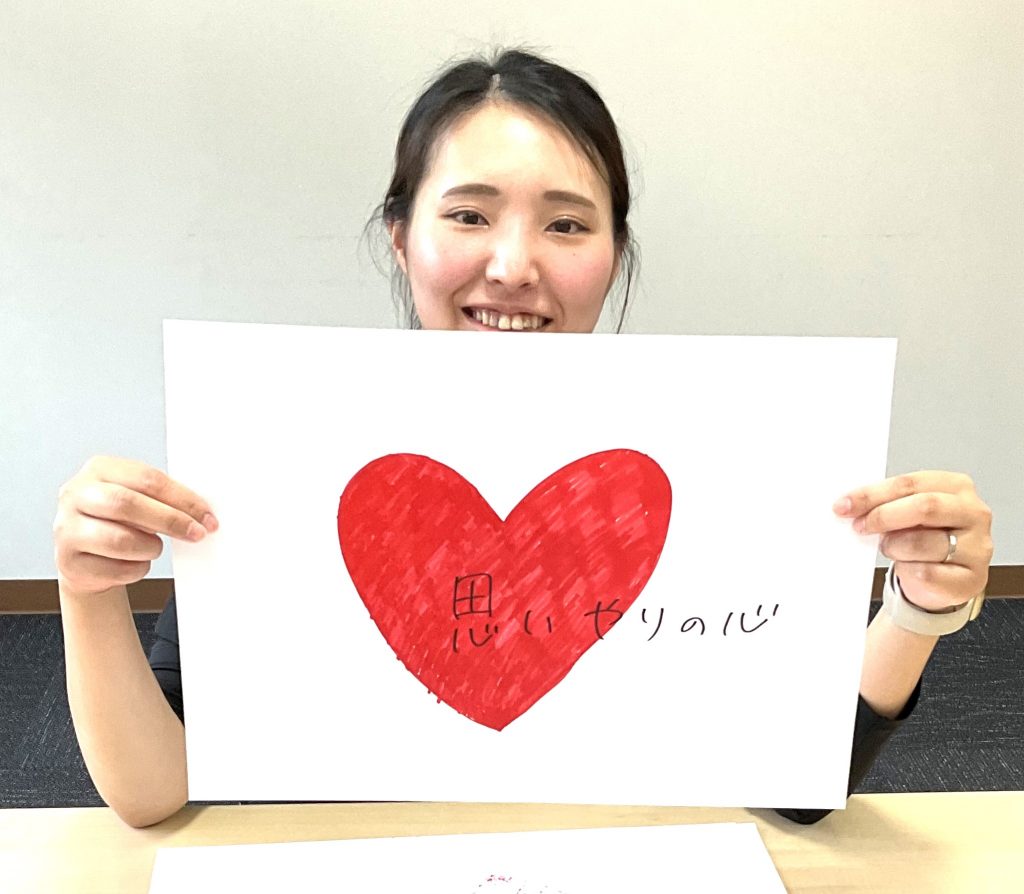 思いやりの心